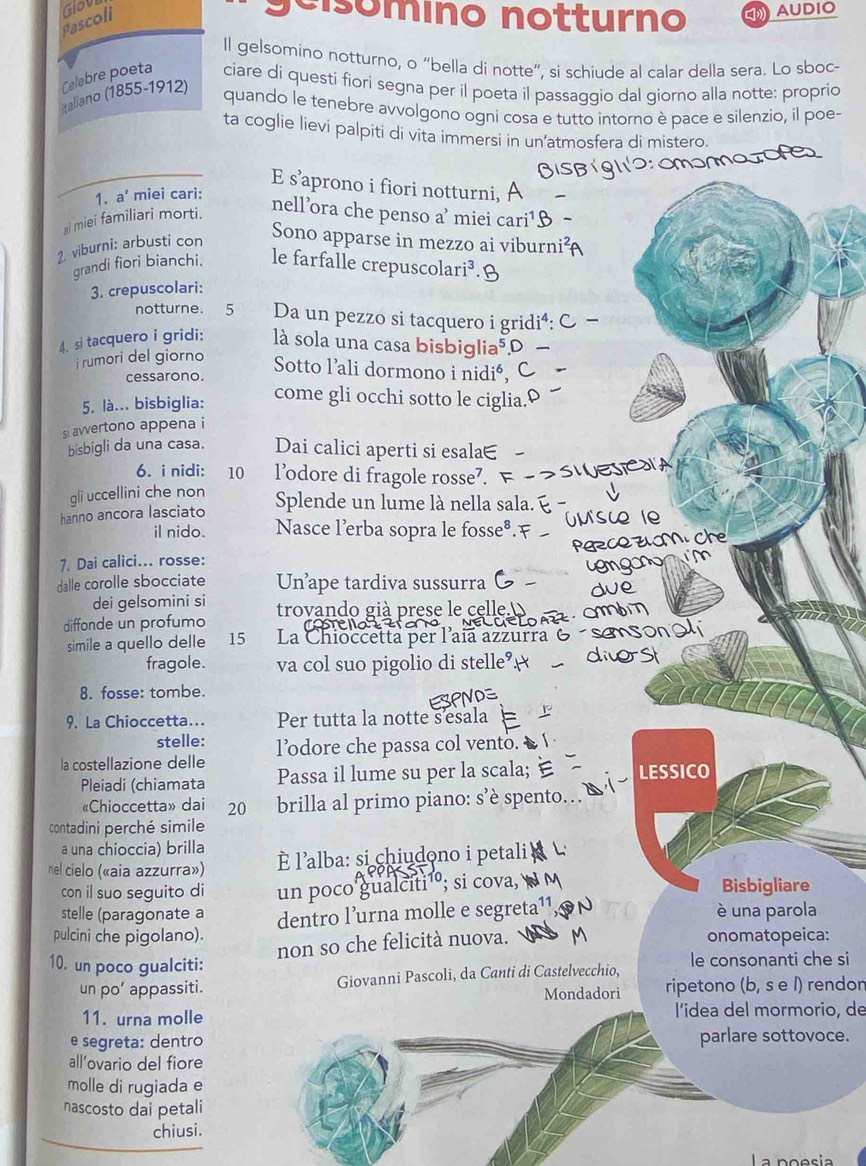 Pascoli
gelsomino notturno
AUDIO
Celebre poeta
italiano (1855-1912)
Il gelsomino notturno, o "bella di notte", si schiude al calar della sera. Lo sboc-
ciare di questi fiori segna per il poeta il passaggio dal giorno alla notte: proprio
quando le tenebre avvolgono ogni cosa e tutto intorno è pace e silenzio, il poe-
ta coglie lievi palpiti di vita immersi in un'atmosfera di mistero.
BISBiglio: onomatopea
E s'aprono i fiori notturni, A -
nell'ora che penso a' miei cari¹ B -
Sono apparse in mezzo ai viburni² A
le farfalle crepuscolari³. B
5 Da un pezzo si tacquero i gridi⁴: C -
là sola una casa bisbiglia⁵. D -
Sotto l'ali dormono i nidi⁶, C -
come gli occhi sotto le ciglia. D -
Dai calici aperti si esala E -
10 l'odore di fragole rosse⁷. F -> SINESTESIA
Splende un lume là nella sala. E -
Nasce l'erba sopra le fosse⁸. F -
UNISCE le
PERCEZIONI che
vengono in
due
ambiti
sensoriali
diversi
Un'ape tardiva sussurra G -
trovando già prese le celle. H
Costellazione NEL CIELO AZZ.
15 La Chioccetta per l'aia azzurra G -
va col suo pigolio di stelle⁹. H -
ESPNDE
Per tutta la notte s'esala E I
l'odore che passa col vento. I
Passa il lume su per la scala; E -
20 brilla al primo piano: s'è spento... I -
È l'alba: si chiudono i petali L
APPASSITI
un poco gualciti¹⁰; si cova, M
dentro l'urna molle e segreta¹¹, N
non so che felicità nuova. M
Giovanni Pascoli, da Canti di Castelvecchio,
Mondadori
1. a' miei cari:
ai miei familiari morti.
2. viburni: arbusti con
grandi fiori bianchi.
3. crepuscolari:
notturne.
4. si tacquero i gridi:
i rumori del giorno
cessarono.
5. là... bisbiglia:
si avvertono appena i
bisbigli da una casa.
6. i nidi:
gli uccellini che non
hanno ancora lasciato
il nido.
7. Dai calici... rosse:
dalle corolle sbocciate
dei gelsomini si
diffonde un profumo
simile a quello delle
fragole.
8. fosse: tombe.
9. La Chioccetta...
stelle:
la costellazione delle
Pleiadi (chiamata
«Chioccetta» dai
contadini perché simile
a una chioccia) brilla
nel cielo («aia azzurra»)
con il suo seguito di
stelle (paragonate a
pulcini che pigolano).
10. un poco gualciti:
un po' appassiti.
11. urna molle
e segreta: dentro
all'ovario del fiore
molle di rugiada e
nascosto dai petali
chiusi.
LESSICO
Bisbigliare
è una parola
onomatopeica:
le consonanti che si
ripetono (b, s e l) rendon
l'idea del mormorio, de
parlare sottovoce.
La poesia